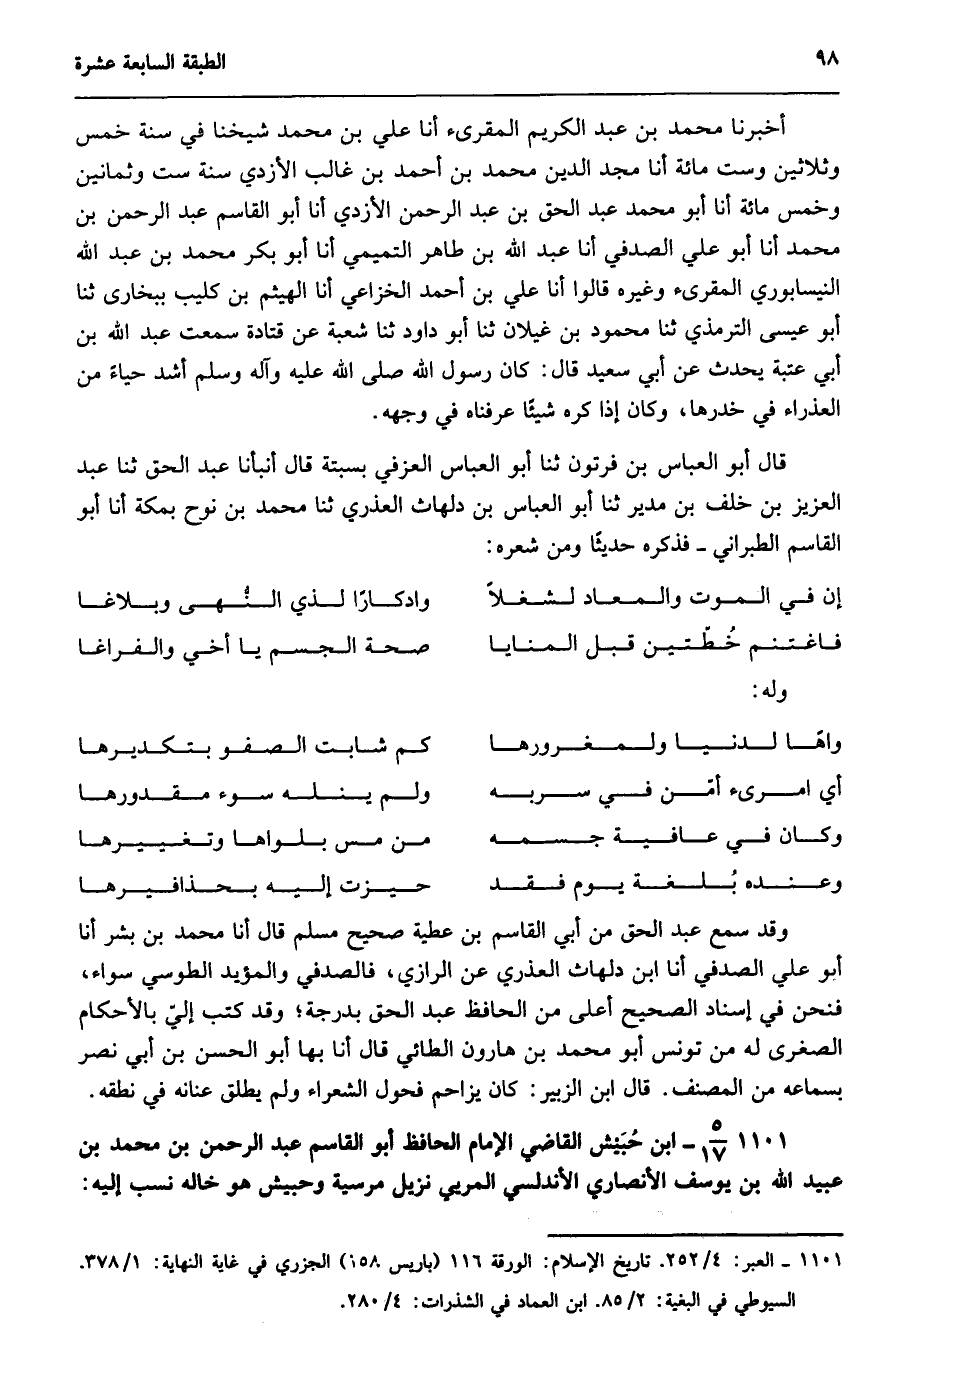 ٩٨
الطبقة السابعة عشرة
أخبرنا محمد بن عبد الكريم المقرىء أنا علي بن محمد شيخنا في سنة خمس
وثلاثين وست مائة أنا مجد الدين محمد بن أحمد بن غالب الأزدي سنة ست وثمانين
وخمس مائة أنا أبو محمد عبد الحق بن عبد الرحمن الأزدي أنا أبو القاسم عبد الرحمن بن
محمد أنا أبو علي الصدفي أنا عبد الله بن طاهر التميمي أنا أبو بكر محمد بن عبد الله
النيسابوري المقرىء وغيره قالوا أنا علي بن أحمد الخزاعي أنا الهيثم بن كليب ببخارى ثنا
أبو عيسى الترمذي ثنا محمود بن غيلان ثنا أبو داود ثنا شعبة عن قتادة سمعت عبد الله بن
أبي عتبة يحدث عن أبي سعيد قال: كان رسول الله صلى الله عليه وآله وسلم أشد حياءً من
العذراء في خدرها، وكان إذا كره شيئًا عرفناه في وجهه.
قال أبو العباس بن فرتون ثنا أبو العباس العزفي بسبتة قال أنبأنا عبد الحق ثنا عبد
العزيز بن خلف بن مدير ثنا أبو العباس بن دلهاث العذري ثنا محمد بن نوح بمكة أنا أبو
القاسم الطبراني ـ فذكره حديثًا ومن شعره:
إن في الموت والمعاد لشغلاً وادكارًا لذي النُّهى وبلاغا
فاغتنم خُطَّتين قبل المنايا صحة الجسم يا أخي والفراغا
وله:
واهًا لدنيا ولمغرورها كم شابت الصفو بتكديرها
أي امرىء أمّن في سربه ولم ينله سوء مقدورها
وكان في عافية جسمه من مس بلواها وتغييرها
وعنده بُلغة يوم فقد حيزت إليه بحذافيرها
وقد سمع عبد الحق من أبي القاسم بن عطية صحيح مسلم قال أنا محمد بن بشر أنا
أبو علي الصدفي أنا ابن دلهاث العذري عن الرازي، فالصدفي والمؤيد الطوسي سواء،
فنحن في إسناد الصحيح أعلى من الحافظ عبد الحق بدرجة؛ وقد كتب إليّ بالأحكام
الصغرى له من تونس أبو محمد بن هارون الطائي قال أنا بها أبو الحسن بن أبي نصر
بسماعه من المصنف. قال ابن الزبير: كان يزاحم فحول الشعراء ولم يطلق عنانه في نطقه.
١١٠١ ٥/١٧ ـ ابن حُبَيْش القاضي الإمام الحافظ أبو القاسم عبد الرحمن بن محمد بن
عبيد الله بن يوسف الأنصاري الأندلسي المريي نزيل مرسية وحبيش هو خاله نسب إليه:
١١٠١ ـ العبر: ٢٥٢/٤. تاريخ الإسلام: الورقة ١١٦ (باريس ١٥٨) الجزري في غاية النهاية: ٣٧٨/١.
السيوطي في البغية: ٨٥/٢. ابن العماد في الشذرات: ٢٨٠/٤.